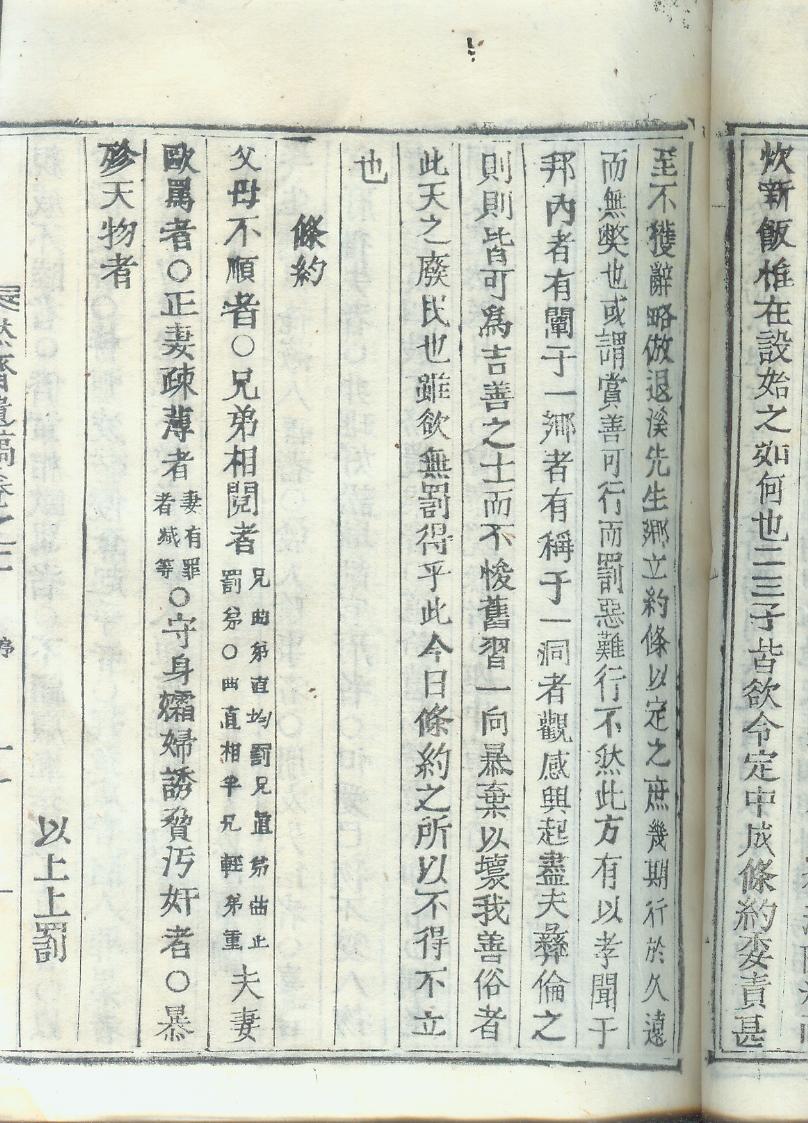 炊新飯惟在設始之如何也二三子皆欲令定中成條約委責甚
至不獲辭略倣退溪先生鄕立約條以定之庶幾期行於久遠
而無弊也或謂賞善可行而罰惡難行不然此方有以孝聞于
邦內者有闡于一鄕者有稱于一洞者觀感興起盡夫彛倫之
則則皆可爲吉善之士而不悛舊習一向暴棄以壞我善俗者
此天之廢民也雖欲無罰得乎此今日條約之所以不得不立
也
條約
父母不順者○兄弟相䦧者兄曲弟直均罰兄直弟曲止罰弟○曲直相半兄輕弟重夫妻
毆罵者○正妻疎薄者妻有罪者减等○守身孀婦誘脅汚奸者○暴
殄天物者
以上上罰
齋遺稿卷之二 序